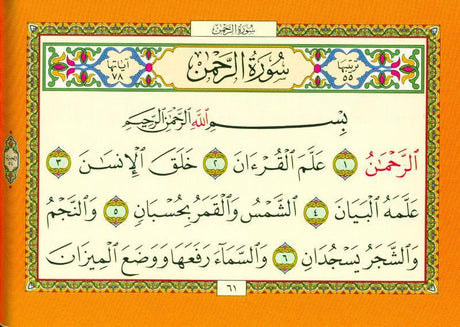 سُورَةُ الرَّحْمٰن
آيَاتُهَا ٧٨ سُورَةُ الرَّحْمٰنِ تَرْتِيبُهَا ٥٥
بِسْمِ اللَّهِ الرَّحْمَٰنِ الرَّحِيمِ
الرَّحْمَٰنُ ١ عَلَّمَ الْقُرْءَانَ ٢ خَلَقَ الْإِنسَانَ ٣
عَلَّمَهُ الْبَيَانَ ٤ الشَّمْسُ وَالْقَمَرُ بِحُسْبَانٍ ٥ وَالنَّجْمُ
وَالشَّجَرُ يَسْجُدَانِ ٦ وَالسَّمَاءَ رَفَعَهَا وَوَضَعَ الْمِيزَانَ
٦١